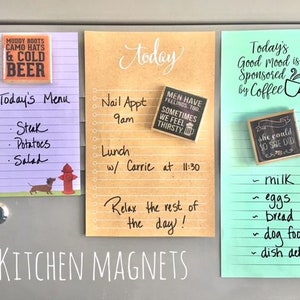 MUDDY BOOTS
CAMO HATS
& COLD
BEER
Today's Menu
· Steak
· Potatoes
· Salad
today
Nail Appt
9am
MEN HAVE
FEELINGS TOO.
SOMETIMES
WE FEEL
THIRSTY.
Lunch
w/ Carrie at 11:30
Relax the rest of
the day!
Today's
Good Mood is
Sponsored
by Coffee
she could
SO SHE DID
~ milk
~ eggs
~ bread
~ dog foo
~ dish de
KITCHEN MAGNETS